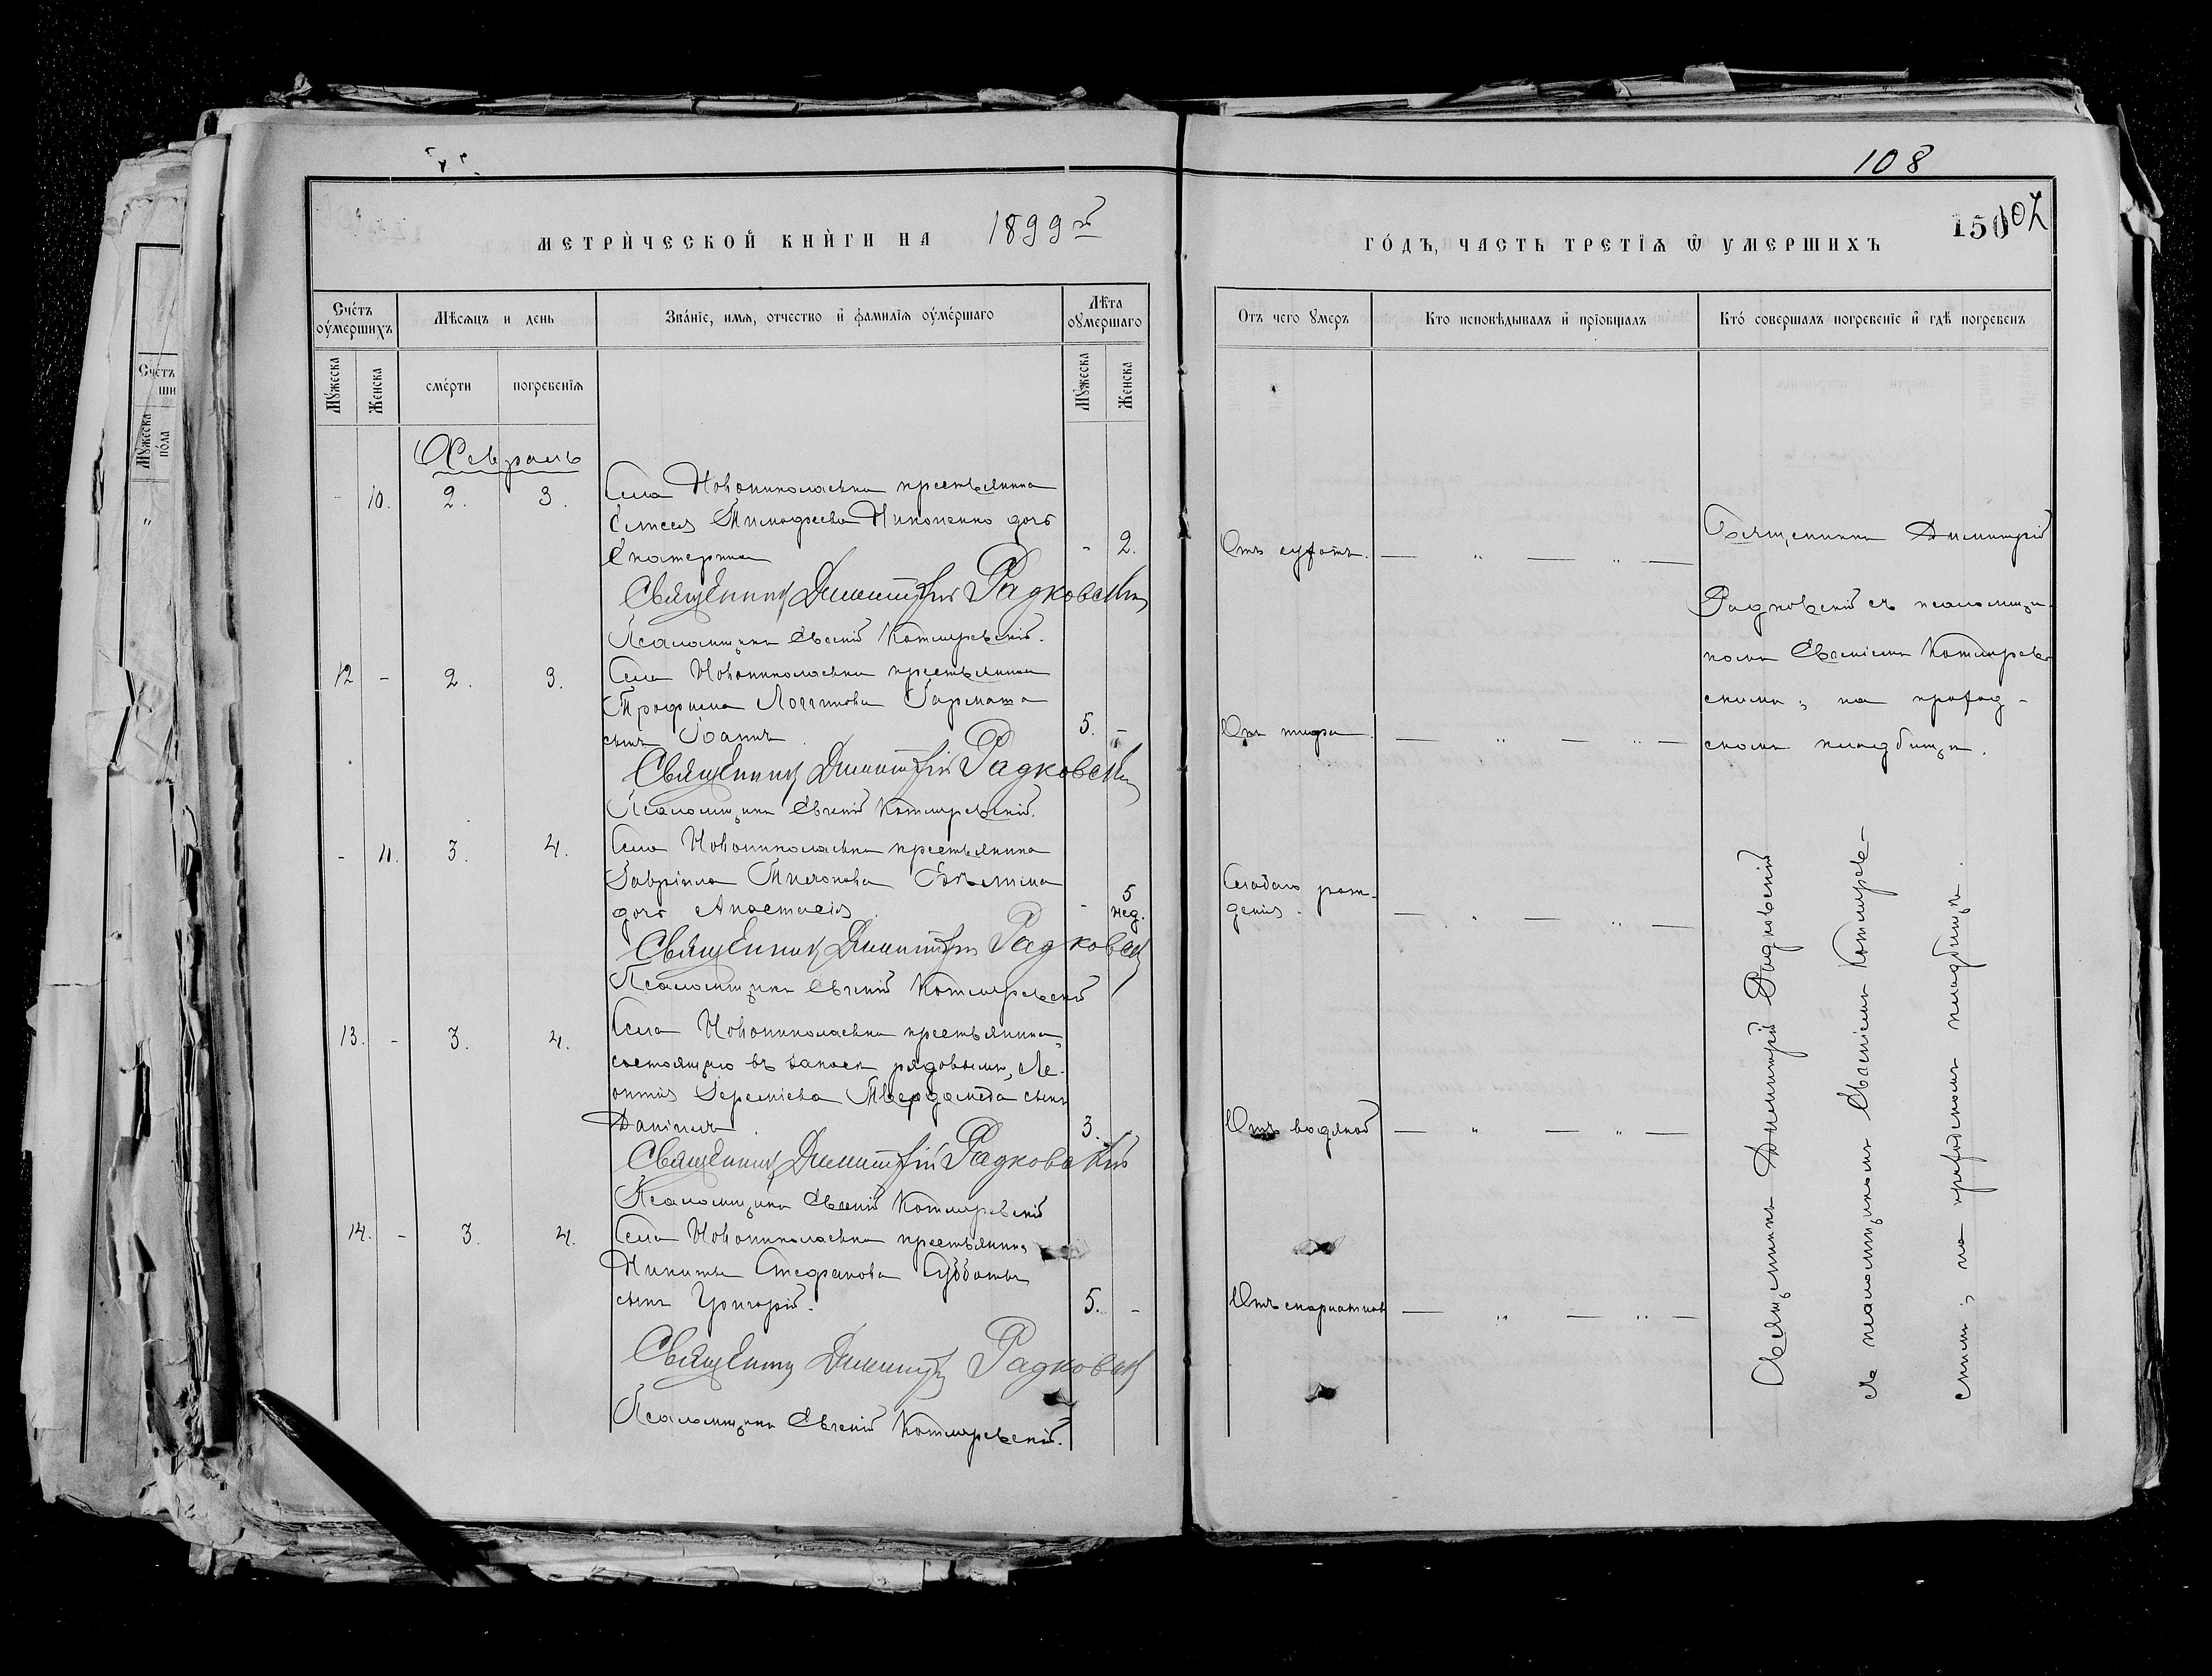 108
МЕТРИЧЕСКОЙ КНИГИ НА 1899й
ГОДЪ, ЧАСТЬ ТРЕТІѦ Ѿ УМЕРШИХЪ
150
107
Счетъ оумершихъ
Мѣсяцъ и день
Званіе, имя, отчество и фамилія оумершаго
Лѣта оумершаго
Мужеска
Женска
смерти
погребенія
Мужеска
Женска
Отъ чего умеръ
Кто исповѣдывалъ и пріобщалъ
Кто совершалъ погребеніе и гдѣ погребенъ
Счетъ
ши
Мужеска
пола
Февраль
- 10. 2. 3. Села Новониколаевки крестьянина
Елисея Тимофеева Никоненко дочь
Екатерина - 2.
Священникъ Димитрій Радковскій
Псаломщикъ Евгеній Котляревскій.
12 - 2. 3. Села Новониколаевки крестьянина
Трофима Логгинова Гармаша
сынъ Іоаннъ. 5. -
Отъ тифа.
Священникъ Димитрій Радковскій
Псаломщикъ Евгеній Котляревскій.
- 11. 3. 4. Села Новониколаевки крестьянина
Гавріила Тихонова
дочь Анастасія. - 5 нед.
Слабаго рож-
денія.
Священникъ Димитрій Радковскій
Псаломщикъ Евгеній Котляревскій
13. - 3. 4. Села Новониколаевки крестьянина,
состоящаго въ запасѣ рядовымъ, Ле-
онтія Іереміева Твердохлѣба сынъ
Даніилъ. 3.
Отъ водяной
Священникъ Димитрій Радковскій
Псаломщикъ Евгеній Котляревскій
14. - 3. 4. Села Новониколаевки крестьянина
Никиты Стефанова Субботы
сынъ Григорій. 5. -
Отъ скарлатины
Священникъ Димитрій Радковскій
Псаломщикъ Евгеній Котляревскій.
Священникъ Димитрій
Радковскій съ псаломщи-
комъ Евгеніемъ Котлярев-
скимъ; на приход-
скомъ кладбищѣ.
Священникъ Димитрій Радковскій
съ псаломщикомъ Евгеніемъ Котлярев-
скимъ; на приходскомъ кладбищѣ.